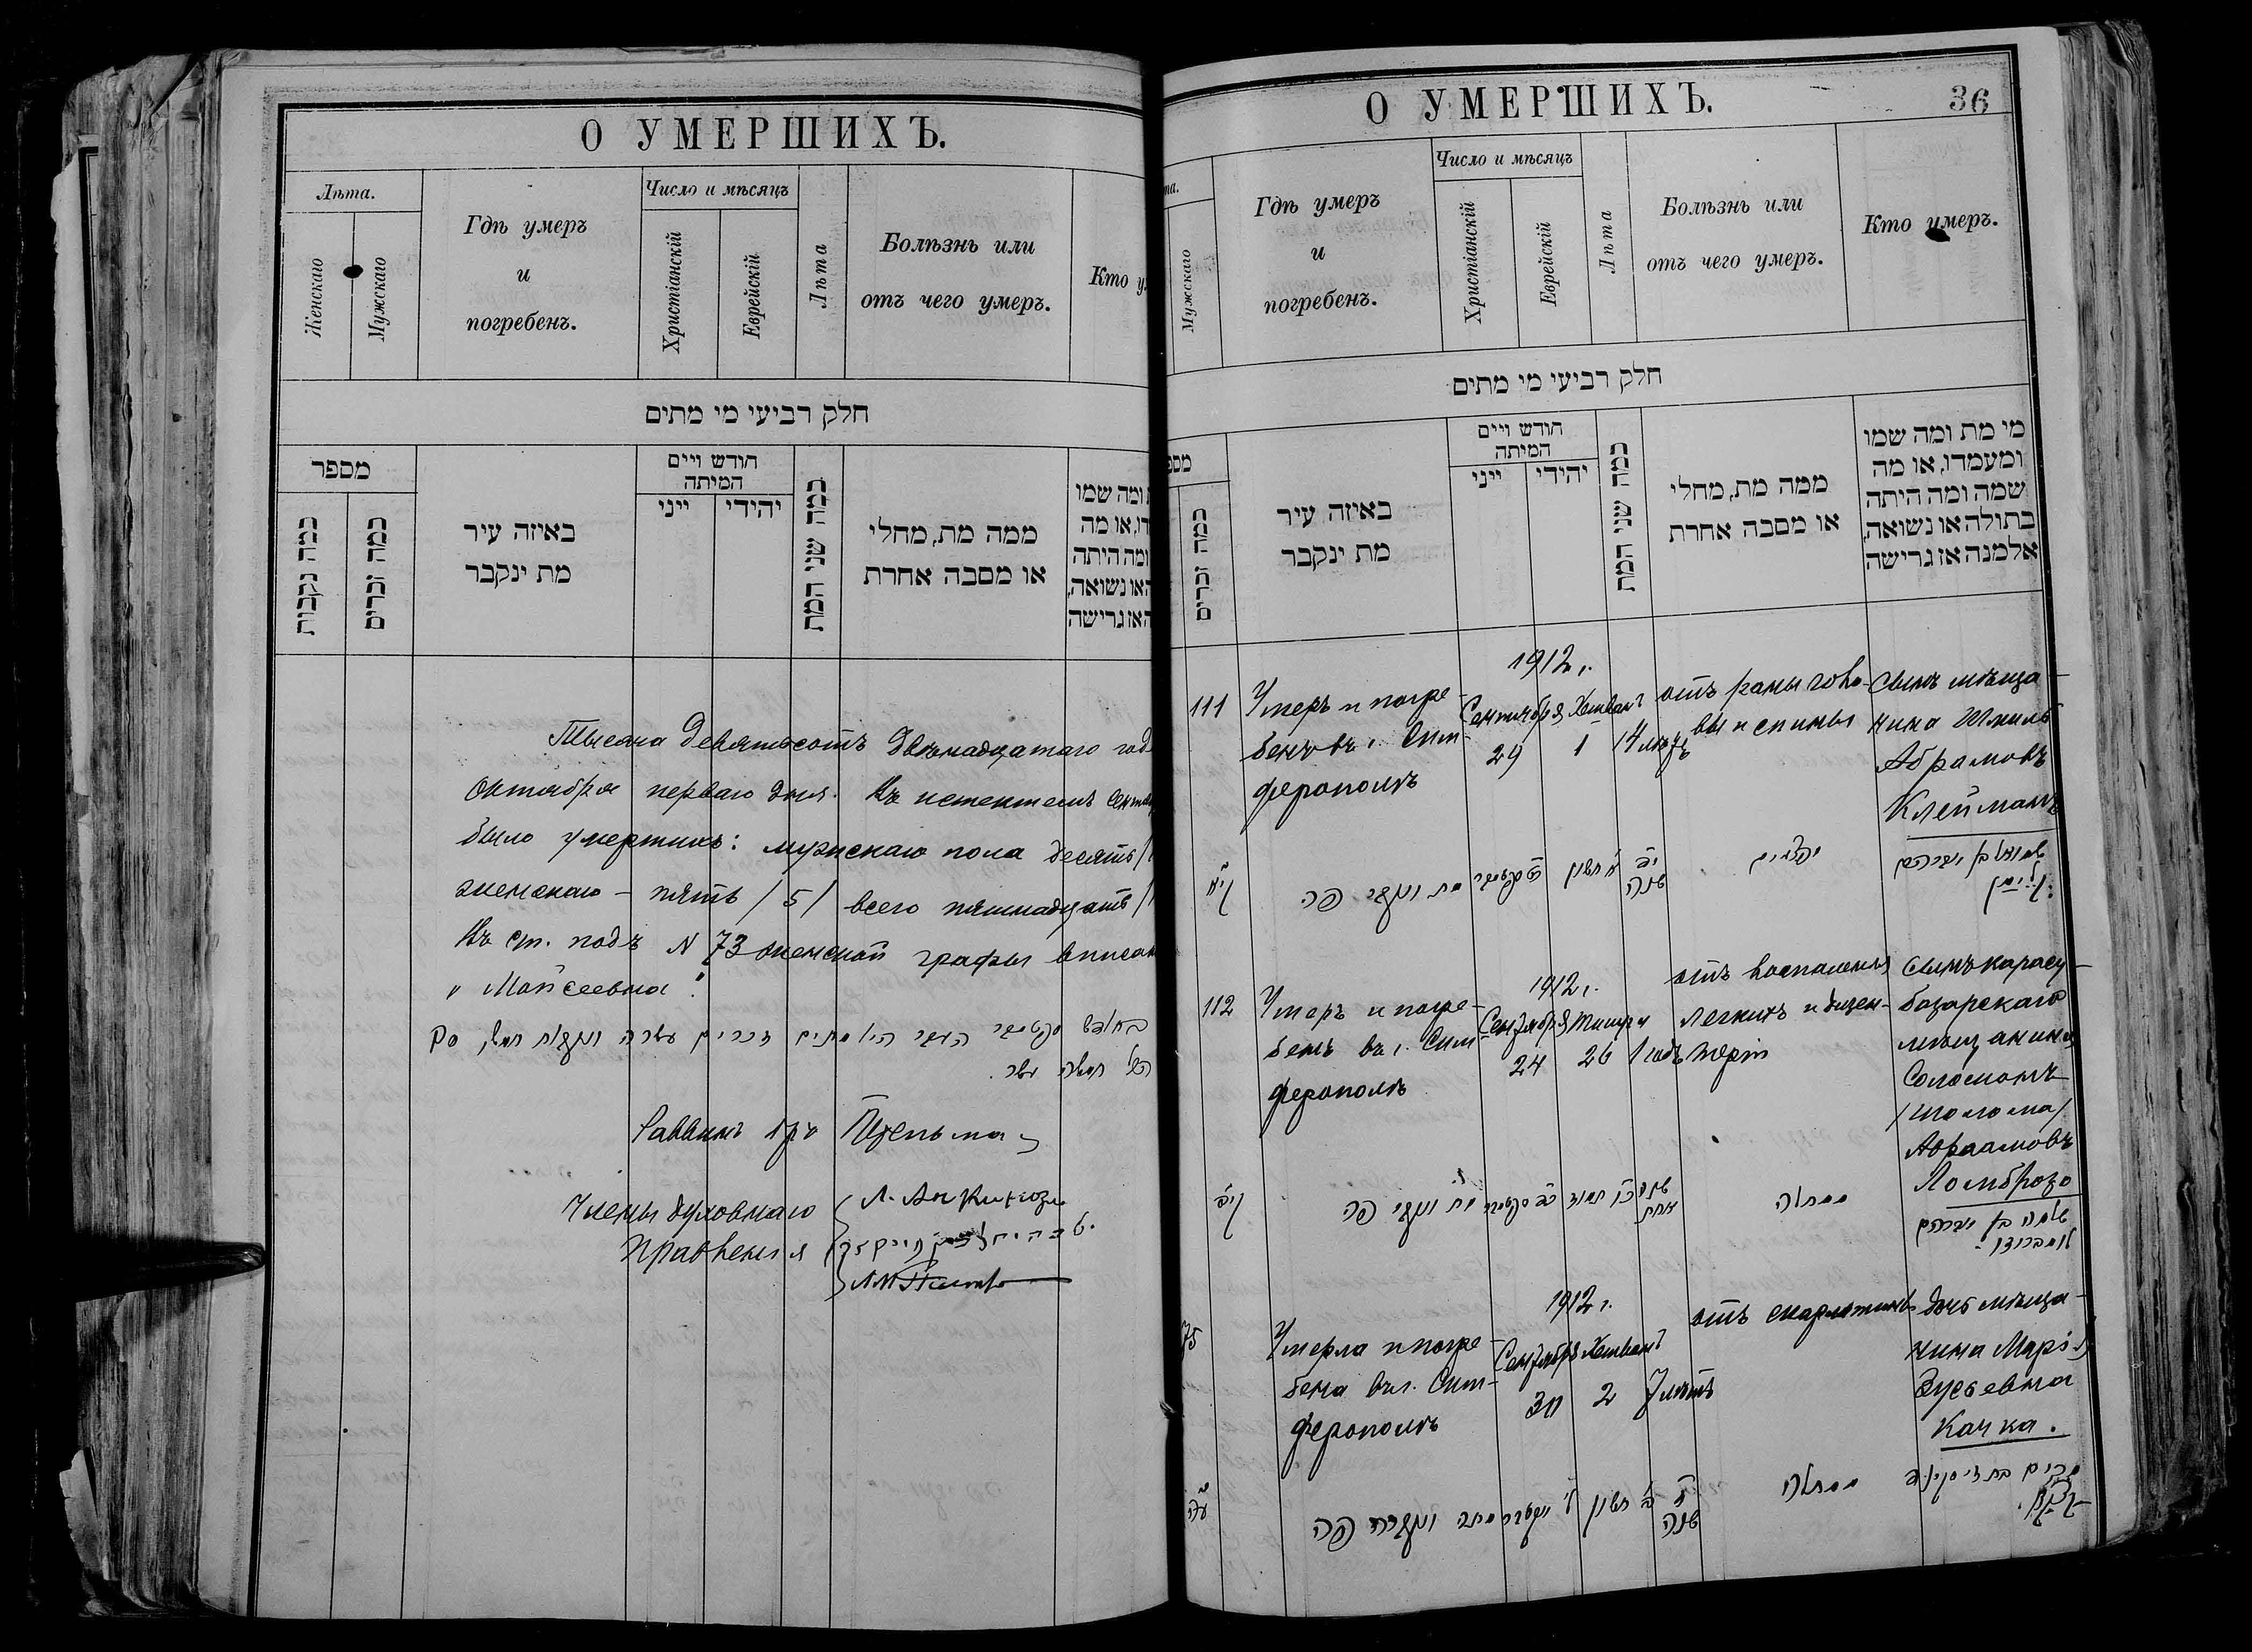 О УМЕРШИХЪ.
Лѣта.
Женскаго
Мужскаго
Гдѣ умеръ
и
погребенъ.
Число и мѣсяцъ
Христіанскій
Еврейскій
Лѣта
Болѣзнь или
отъ чего умеръ.
Кто у
חלק רביעי מי מתים
מספר
כמה נקבות
כמה זכרים
באיזה עיר
מת ינקבר
חודש ויים
המיתה
ייני
יהודי
כמה שני המת
ממה מת, מחלי
או מסבה אחרת
ומה שמו
או מה
ומה היתה
או נשואה,
אז גרישה
Тысяча девятьсотъ двѣнадцатаго год
октября перваго дня. Въ истекшемъ Сентяб
было умершихъ: мужскаго пола десять /
женскаго – пять /5/ всего пятнадцать /
Въ ст. подъ N 73 женской графы вписан
„Мойсеевна“.
בחודש
זכרים עשרה
Раввинъ
Члены духовнаго
Правленія
О УМЕРШИХЪ.
36
та.
Мужскаго
Гдѣ умеръ
и
погребенъ.
Число и мѣсяцъ
Христіанскій
Еврейскій
Лѣта
Болѣзнь или
отъ чего умеръ.
Кто умеръ.
חלק רביעי מי מתים
מספ
כמה זכרים
באיזה עיר
מת ינקבר
חודש ויים
המיתה
ייני
יהידי
כמה שני המת
ממה מת, מחלי
או מסבה אחרת
מי מת ומה שמו
ומעמדו, או מה
שמה ומה היתה
בתולה או נשואה,
אלמנה אז גרישה
111
Умеръ и погре-
бенъ въ г. Сим-
ферополѣ
1912 г.
Сентября
29
Хешванъ
1
14 лѣтъ
отъ раны голо-
вы и спины
Сынъ мѣща-
нина Шмиль
Абрамовъ
Клейманъ
קיא
מת ונקבר פה
א חשון
שנה
שמואל בן אברהם
קליימן
112
Умеръ и погре-
бенъ въ г. Сим-
ферополѣ
1912 г.
Сентября
24
Тишри
26
1 годъ
отъ воспаленія
легкихъ и дизен-
теріи
Сынъ карасу-
базарскаго
мѣщанина
Соломонъ
/Шолома/
Авраамовъ
Ломброзо
קיב
מת ונקבר פה
שנה
אחת
ממחלה
שלמה בן אברהם
לומברוזו
75
Умерла и погре-
бена въ г. Сим-
ферополѣ
1912 г.
Сентября
30
Хешванъ
2
7 лѣтъ
отъ скарлатины
дочь мѣща-
нина Марія
Зусьевна
Качка.
עה
מתה ונקברה פה
ב חשון
ז
שנה
ממחלה
מרים בת